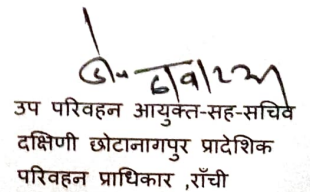 उप परिवहन आयुक्त-सह-सचिव
दक्षिणी छोटानागपुर प्रादेशिक
परिवहन प्राधिकार ,राँची